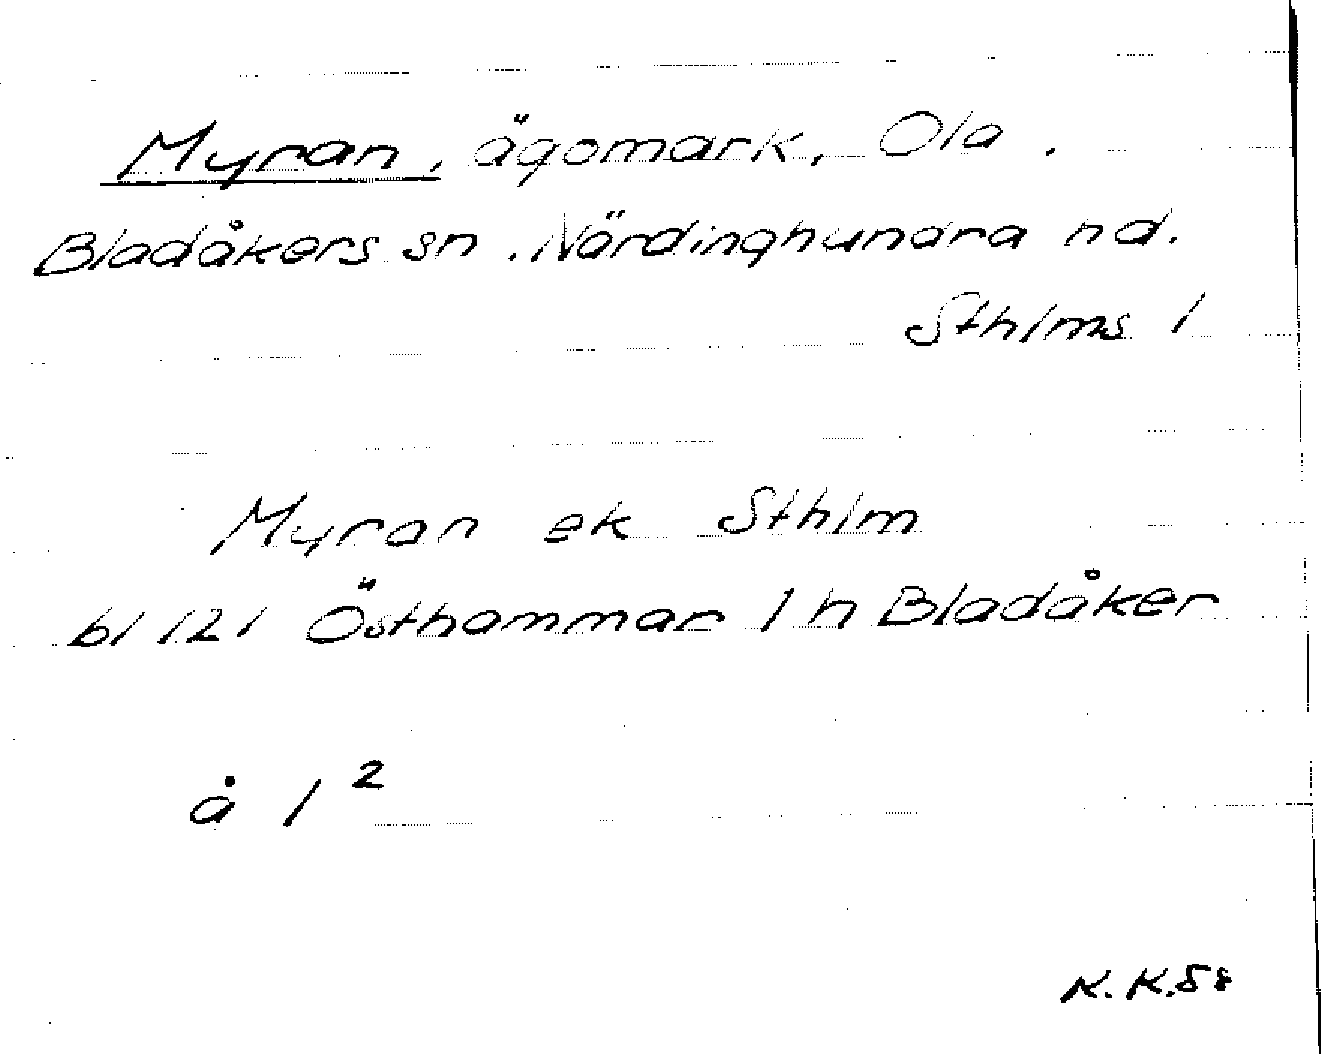 Myran, ägomark, Ola.
Bladåkers sn. Närdinghundra hd.
Sthlms l
Myran ek Sthlm
bl 121 Östhammar 1 h Bladåker
å 1²
K.K.58